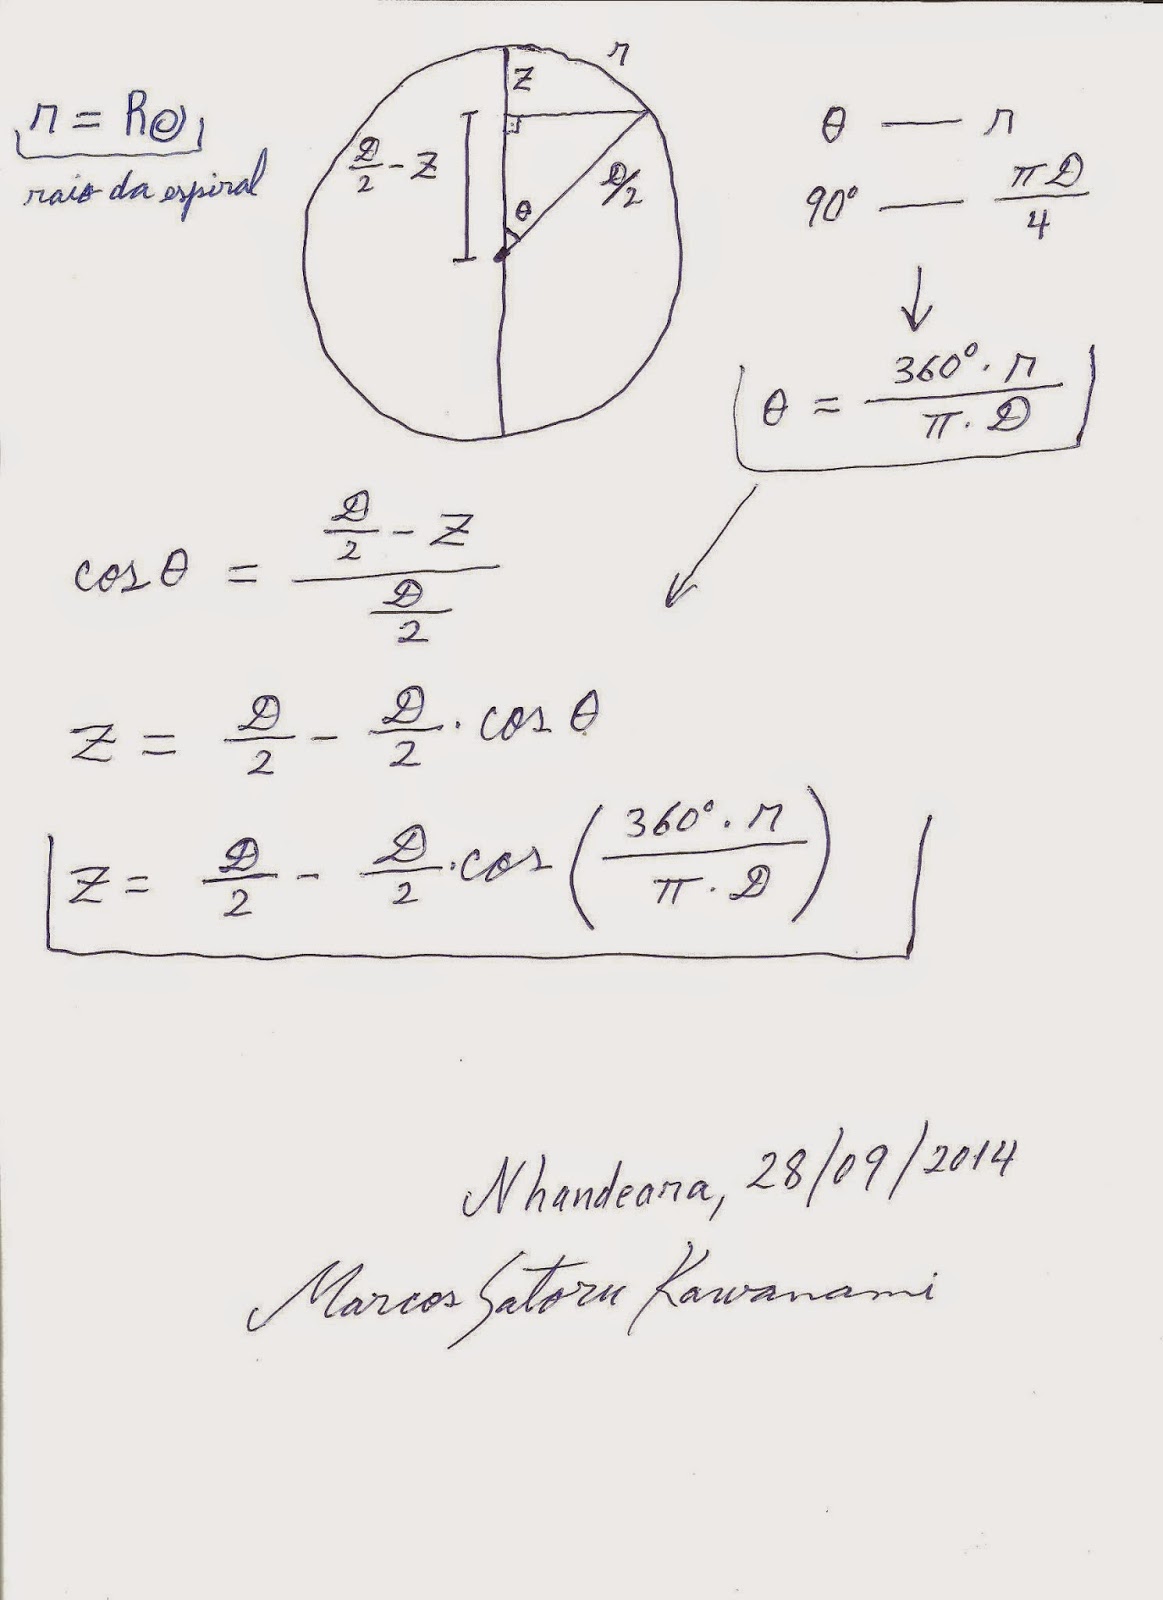 r = R@
raio da espiral
r
Z
D/2 - Z
D/2
θ
θ — r
90° — πD/4
θ = 360°. r / π. D
cos θ = (D/2 - Z) / (D/2)
Z = D/2 - D/2 . cos θ
Z = D/2 - D/2 . cos (360°. r / π. D)
Nhandeara, 28/09/2014
Marcos Satoru Kawanami